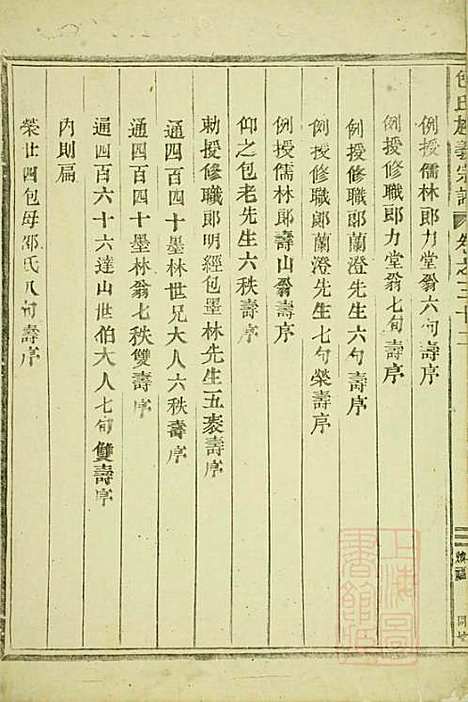 包氏施義宗譜 卷之三十二
例授儒林郎力堂翁六旬壽序
例授修職郎力堂翁七旬壽序
例授修職郎蘭澄先生六旬壽序
例授修職郎蘭澄先生七旬榮壽序
例授儒林郎壽山翁壽序
仰之包老先生六秩壽序
勅授修職郎明經包墨林先生五袠壽序
通四百四十墨林世兄大人六秩壽序
通四百四十墨林翁七秩雙壽序
通四百六十六達山世伯大人七旬雙壽序
內則扁
榮廿四包母邵氏八旬壽序
上海圖書館藏